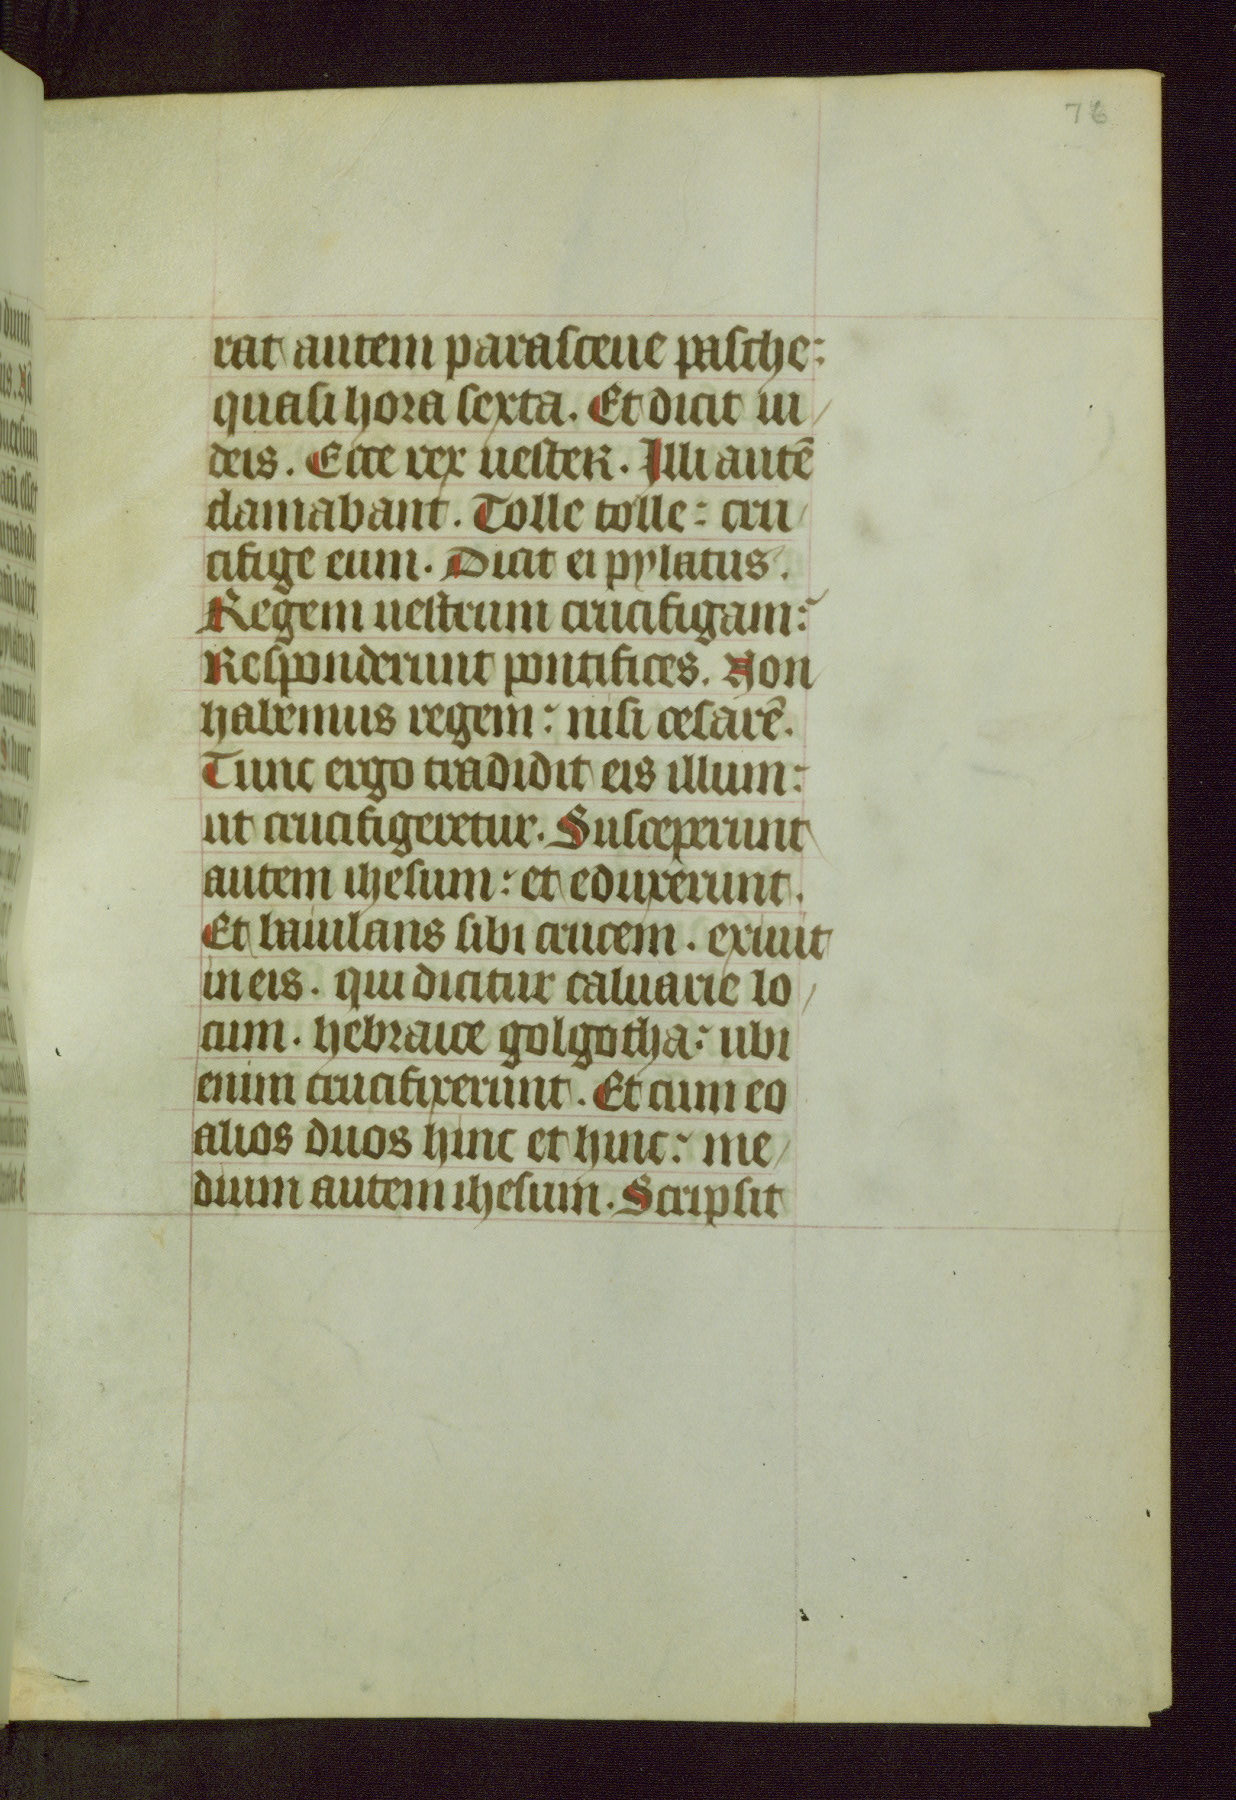 76
rat autem parasceue pasche:
quasi hora sexta. Et dicit iu/
deis. Ecce rex uester. Illi autē
clamabant. Tolle tolle: cru/
cifige eum. Dicit ei pylatus.
Regem uestrum crucifigam:
Responderunt pontifices. Non
habemus regem: nisi cesarē.
Tunc ergo tradidit eis illum:
ut crucifigeretur. Susceperunt
autem ihesum: et eduxerunt.
Et baiulans sibi crucem. exiuit
in eis. qui dicitur caluarie lo/
cum. hebraice golgotha: ubi
enim crucifixerunt. Et cum eo
alios duos hinc et hinc: me/
dium autem ihesum. Scripsit